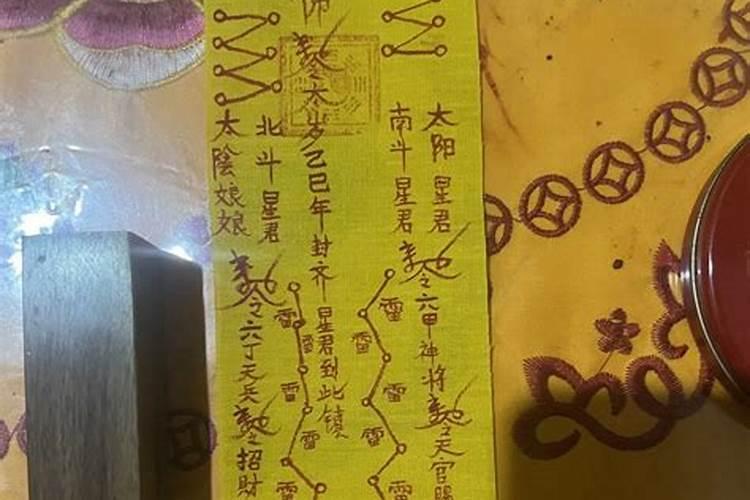 太阳星君
南斗星君
敕令六甲神将敕令天官賜
雷
雷
雷
雷
雷
帅敕令太岁己巳年封齐星君到此镇
雷
雷
雷
雷
雷
北斗星君
太陰娘娘
敕令六丁天兵敕令招財